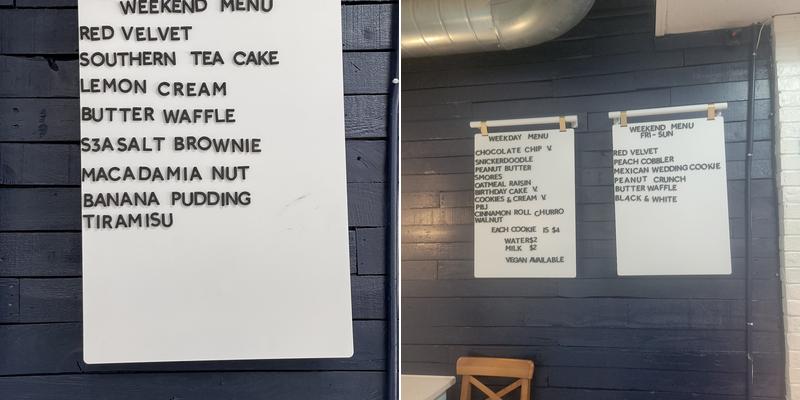 WEEKEND MENU
RED VELVET
SOUTHERN TEA CAKE
LEMON CREAM
BUTTER WAFFLE
S3ASALT BROWNIE
MACADAMIA NUT
BANANA PUDDING
TIRAMISU
WEEKDAY MENU
CHOCOLATE CHIP V.
SNICKERDOODLE
PEANUT BUTTER
SMORES
OATMEAL RAISIN
BIRTHDAY CAKE V.
COOKIES & CREAM V.
PBJ
CINNAMON ROLL CHURRO
WALNUT
EACH COOKIE IS $4
WATER$2
MILK $2
VEGAN AVAILABLE
WEEKEND MENU
FRI-SUN
RED VELVET
PEACH COBBLER
MEXICAN WEDDING COOKIE
PEANUT CRUNCH
BUTTER WAFFLE
BLACK & WHITE